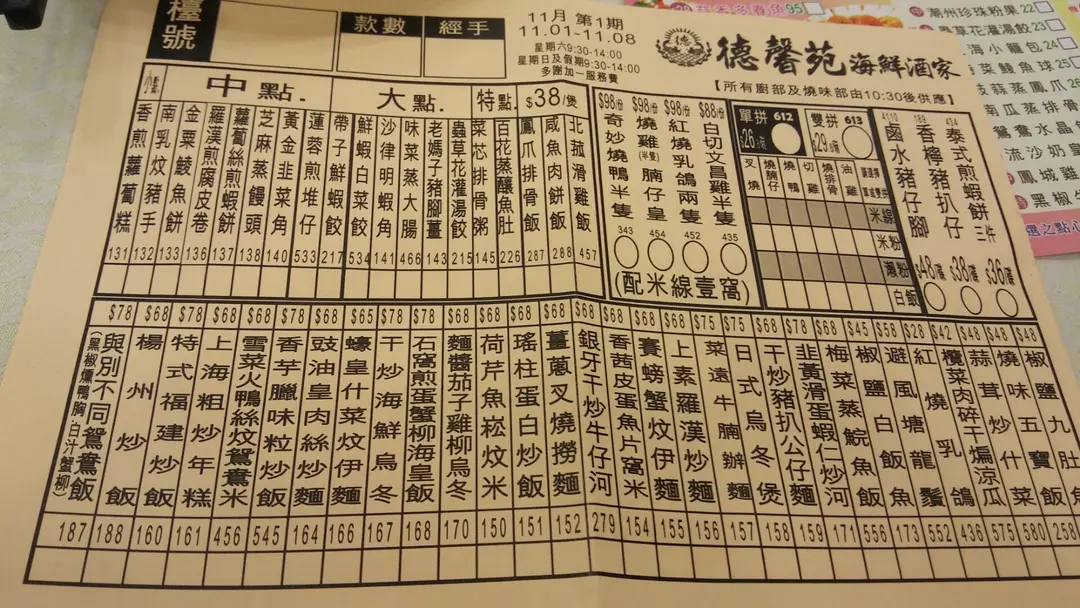 檯號
款數
經手
11月 第1期
11.01～11.08
星期六9:30-14:00
星期日及假期9:30-14:00
多謝加一服務費
德馨苑海鮮酒家
【所有廚部及燒味部由10:30後供應】
中點.
大點.
特點.
$38/煲
香煎蘿蔔糕 131
南乳炆豬手 132
金粟鯪魚餅 133
羅漢煎腐皮卷 136
蘿蔔絲煎蝦餅 137
芝麻蒸饅頭 138
黃金韭菜角 140
蓮蓉煎堆仔 533
帶子鮮蝦餃 217
鮮蝦白菜餃 534
沙律明蝦角 141
味菜蒸大腸 466
老媽子豬腳薑 143
蟲草花灌湯餃 215
菜芯排骨粥 145
百花蒸釀魚肚 226
鳳爪排骨飯 287
咸魚肉餅飯 288
北菰滑雞飯 457
$98/份 奇妙燒鴨半隻 343
$98/份 燒雞(半隻)腩仔皇 454
$98/份 紅燒乳鴿兩隻 452
$88/份 白切文昌雞半隻 435
(配米線壹窩)
單拼 612 $26/窩
雙拼 613 $29/窩
叉燒
燒腩仔
燒鴨
切雞
燒排骨
油雞
米線
米粉
瀨粉
白飯
鹵水豬仔腳 $48/碟
香檸豬扒仔 $38/碟
泰式煎蝦餅三件 $36/碟
$78 與別不同鴛鴦飯 (黑椒燻鴨胸,白汁蟹柳) 187
$78 楊州炒飯 188
$68 特式福建炒飯 160
$68 上海粗炒年糕 161
$68 雪菜火鴨絲炆鴛鴦米 456
$68 香芋臘味粒炒飯 545
$68 豉油皇肉絲炒麵 164
$65 蠔皇什菜炆伊麵 166
$78 干炒海鮮烏冬 167
$78 石窩煎蛋蟹柳海皇飯 168
$68 麵醬茄子雞柳烏冬 170
$68 荷芹魚崧炆米 150
$68 瑤柱蛋白炒飯 151
$68 薑蔥叉燒撈麵 152
$68 銀牙干炒牛仔河 279
$68 香茜皮蛋魚片窩米 154
$68 賽螃蟹炆伊麵 155
$75 上素羅漢炒麵 156
$75 菜遠牛腩辦麵 157
$68 日式烏冬煲 158
$78 干炒豬扒公仔麵 159
$68 韭黃滑蛋蝦仁炒河 171
$45 梅菜蒸鯇魚飯 556
$58 椒鹽白飯魚 173
$28 避風塘龍鬚 552
$42 紅燒乳鴿 436
$48 欖菜肉碎干煸涼瓜 575
$48 蒜茸炒什菜 580
燒味五寶飯 258
$48 椒鹽九肚魚
潮州珍珠粉果 22
蟲草花灌湯餃 23
24
25